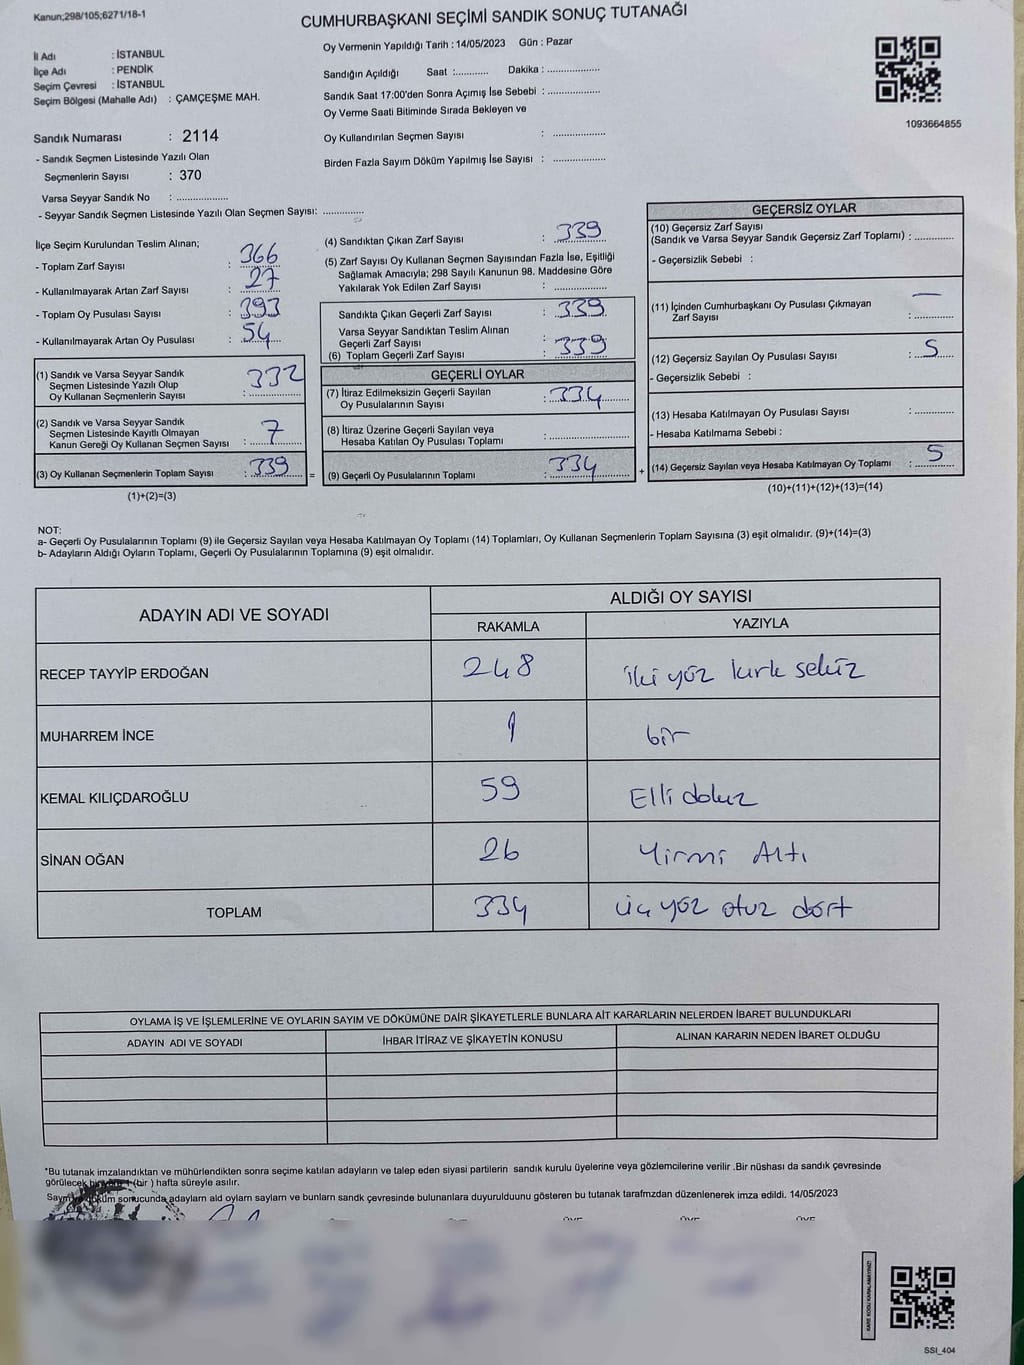 Kanun;298/105;6271/18-1
CUMHURBAŞKANI SEÇİMİ SANDIK SONUÇ TUTANAĞI
İl Adı : İSTANBUL
İlçe Adı : PENDİK
Seçim Çevresi : İSTANBUL
Seçim Bölgesi (Mahalle Adı) : ÇAMÇEŞME MAH.
Sandık Numarası : 2114
- Sandık Seçmen Listesinde Yazılı Olan
Seçmenlerin Sayısı : 370
Varsa Seyyar Sandık No : ..................
- Seyyar Sandık Seçmen Listesinde Yazılı Olan Seçmen Sayısı: ..............
Oy Vermenin Yapıldığı Tarih : 14/05/2023 Gün : Pazar
Sandığın Açıldığı Saat :............ Dakika : ..................
Sandık Saat 17:00'den Sonra Açımış İse Sebebi : ..................
Oy Verme Saati Bitiminde Sırada Bekleyen ve
Oy Kullandırılan Seçmen Sayısı : ..................
Birden Fazla Sayım Döküm Yapılmış İse Sayısı : ..................
1093664855
İlçe Seçim Kurulundan Teslim Alınan;
- Toplam Zarf Sayısı : 366
- Kullanılmayarak Artan Zarf Sayısı : 27
- Toplam Oy Pusulası Sayısı : 393
- Kullanılmayarak Artan Oy Pusulası : 54
(1) Sandık ve Varsa Seyyar Sandık
Seçmen Listesinde Yazılı Olup
Oy Kullanan Seçmenlerin Sayısı : 332
(2) Sandık ve Varsa Seyyar Sandık
Seçmen Listesinde Kayıtlı Olmayan
Kanun Gereği Oy Kullanan Seçmen Sayısı : 7
(3) Oy Kullanan Seçmenlerin Toplam Sayısı : 339 =
(1)+(2)=(3)
(4) Sandıktan Çıkan Zarf Sayısı : 339
(5) Zarf Sayısı Oy Kullanan Seçmen Sayısından Fazla İse, Eşitliği
Sağlamak Amacıyla; 298 Sayılı Kanunun 98. Maddesine Göre
Yakılarak Yok Edilen Zarf Sayısı : ..................
Sandıkta Çıkan Geçerli Zarf Sayısı : 339
Varsa Seyyar Sandıktan Teslim Alınan
Geçerli Zarf Sayısı :
(6) Toplam Geçerli Zarf Sayısı : 339
GEÇERLİ OYLAR
(7) İtiraz Edilmeksizin Geçerli Sayılan
Oy Pusulalarının Sayısı : 334
(8) İtiraz Üzerine Geçerli Sayılan veya
Hesaba Katılan Oy Pusulası Toplamı : ..................
(9) Geçerli Oy Pusulalarının Toplamı : 334 +
GEÇERSİZ OYLAR
(10) Geçersiz Zarf Sayısı
(Sandık ve Varsa Seyyar Sandık Geçersiz Zarf Toplamı) : ............
- Geçersizlik Sebebi :
(11) İçinden Cumhurbaşkanı Oy Pusulası Çıkmayan
Zarf Sayısı : —
(12) Geçersiz Sayılan Oy Pusulası Sayısı : 5
- Geçersizlik Sebebi :
(13) Hesaba Katılmayan Oy Pusulası Sayısı : ............
- Hesaba Katılmama Sebebi :
(14) Geçersiz Sayılan veya Hesaba Katılmayan Oy Toplamı : 5
(10)+(11)+(12)+(13)=(14)
NOT:
a- Geçerli Oy Pusulalarının Toplamı (9) ile Geçersiz Sayılan veya Hesaba Katılmayan Oy Toplamı (14) Toplamları, Oy Kullanan Seçmenlerin Toplam Sayısına (3) eşit olmalıdır. (9)+(14)=(3)
b- Adayların Aldığı Oyların Toplamı, Geçerli Oy Pusulalarının Toplamına (9) eşit olmalıdır.
ADAYIN ADI VE SOYADI ALDIĞI OY SAYISI
RAKAMLA YAZIYLA
RECEP TAYYİP ERDOĞAN 248 iki yüz kırk sekiz
MUHARREM İNCE 1 bir
KEMAL KILIÇDAROĞLU 59 Elli dokuz
SİNAN OĞAN 26 Yirmi Altı
TOPLAM 334 üç yüz otuz dört
OYLAMA İŞ VE İŞLEMLERİNE VE OYLARIN SAYIM VE DÖKÜMÜNE DAİR ŞİKAYETLERLE BUNLARA AİT KARARLARIN NELERDEN İBARET BULUNDUKLARI
ADAYIN ADI VE SOYADI İHBAR İTİRAZ VE ŞİKAYETİN KONUSU ALINAN KARARIN NEDEN İBARET OLDUĞU
*Bu tutanak imzalandıktan ve mühürlendikten sonra seçime katılan adayların ve talep eden siyasi partilerin sandık kurulu üyelerine veya gözlemcilerine verilir .Bir nüshası da sandık çevresinde
görülecek bir yere 1 (bir ) hafta süreyle asılır.
Sayım döküm sonucunda adaylarn ald oylarn saylarn ve bunlarn sandk çevresinde bulunanlara duyurulduunu gösteren bu tutanak tarafmzdan düzenlenerek imza edildi. 14/05/2023
ÜYE ÜYE ÜYE
KARE KODU KARALAMAYINIZ!
SSI_404